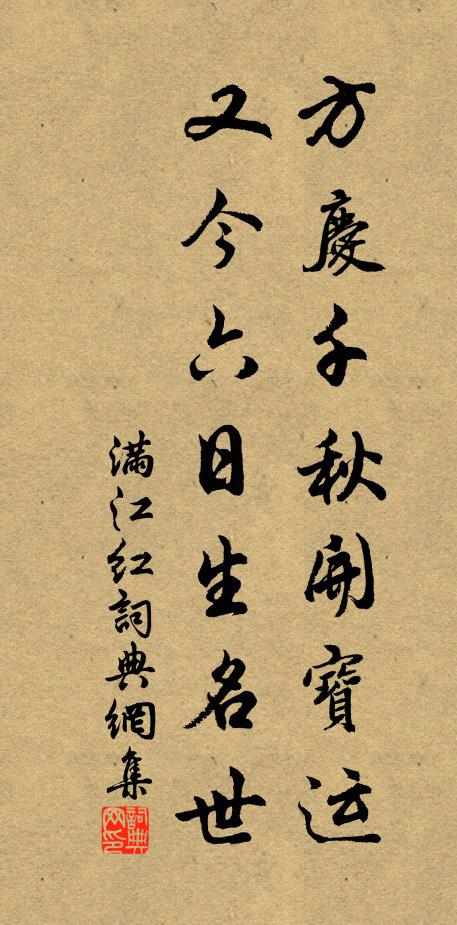 方慶千秋開寶运
又今六日生名世
满江红詞典網集
詞典网印